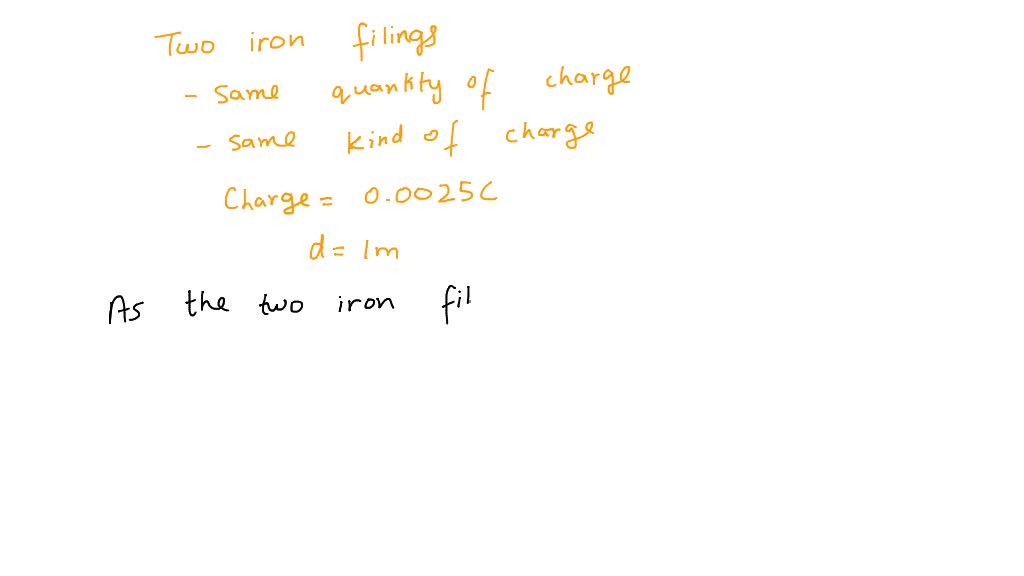 Two iron filings
- same quantity of charge
- same kind of charge
Charge = 0.0025C
d = 1m
As the two iron fil